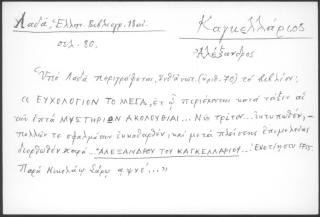 Λαδᾶ, Ἑλλην. Βιβλιογρ. 18 αἰ.
σελ. 80.
Καγκελλάριος
Ἀλέξανδρος
Ὑπὸ Λαδᾶ περιγράφεται, (ἀριθ. 70) τὸ βιβλίον:
« ΕΥΧΟΛΟΓΙΟΝ ΤΟ ΜΕΓΑ, ἐν ᾧ περιέχονται κατὰ τάξιν αἱ
τῶν ἑπτὰ ΜΥΣΤΗΡΙΩΝ ΑΚΟΛΟΥΘΙΑΙ... Νῦν τρίτον... ἐκτυπωθέν,
πολλῶν τε σφαλμάτων ἐκκαθαρθέν, καὶ μετὰ πλείονος ἐπιμελείας
διορθωθὲν παρὰ... ΑΛΕΞΑΝΔΡΟΥ ΤΟΥ ΚΑΓΚΕΛΛΑΡΙΟΥ... Ἐνετίῃσιν
Παρὰ Νικολάῳ Σάρῳ...»